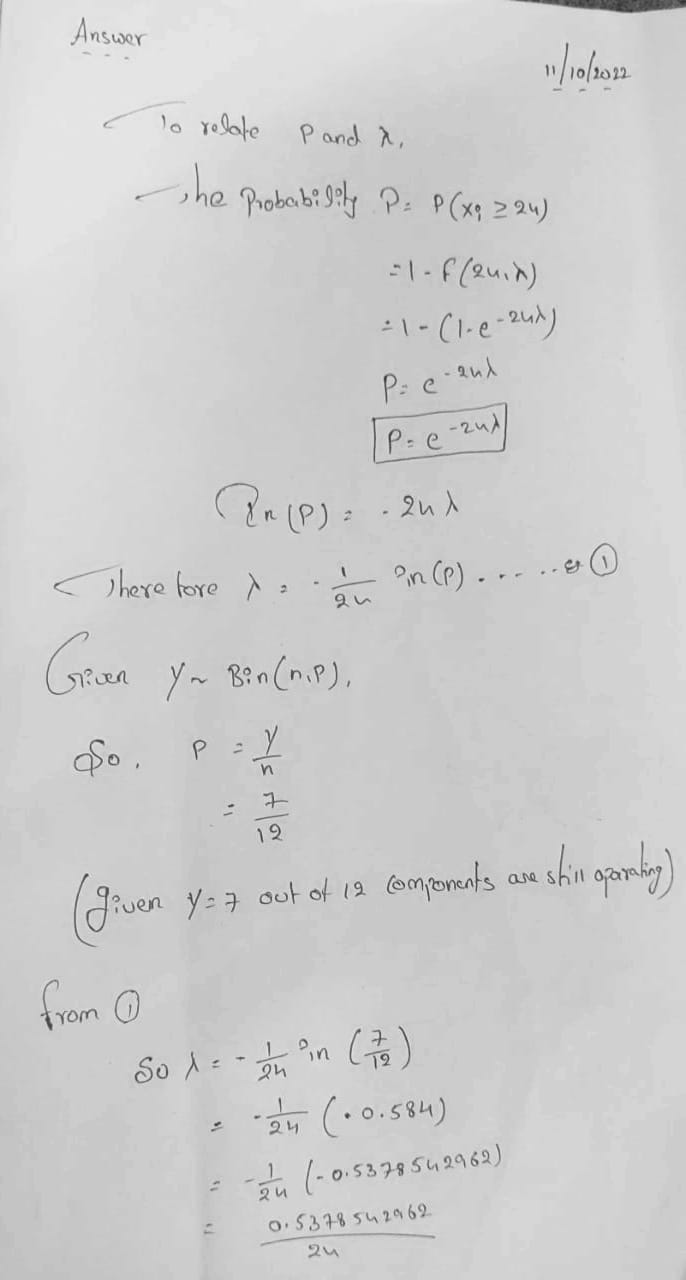 Answer
11/10/2022
To relate P and λ,
The Probability P = P(xi ≥ 24)
= 1 - F(24, λ)
= 1 - (1 - e^-24λ)
P = e^-24λ
P = e^-24λ
ln(P) = - 24λ
Therefore λ = - 1/24 ln(P) ..... ①
Given Y ~ Bin(n,P),
So, P = Y/n
= 7/12
(given Y = 7 out of 12 components are still operating)
from ①
So λ = - 1/24 ln (7/12)
= - 1/24 (. 0.584)
= - 1/24 (-0.5378542962)
= 0.5378542962/24